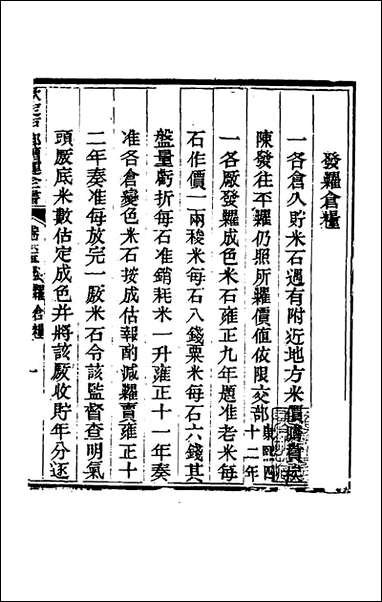 發糶倉糧
一各倉入貯米石遇有附近地方米價騰貴
陳發往平糶仍照所糶價值依限交部康熙四十二年
一各厫發糶成色米石雍正九年題准老米每
石作價一兩稜米每石八錢粟米每石六錢其
盤量虧折每石准銷耗米一升雍正十一年奏
准各倉變色米石按成估報酌減糶賣雍正十
二年奏准每放完一厫米石令該監督查明氣
頭厫底米數估定成色并將該厫收貯年分逐
欽定戶部漕運全書 發糶倉糧 一